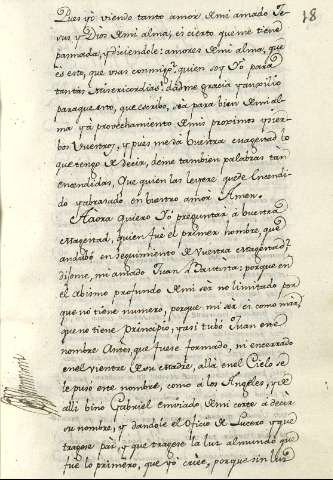 18
Pues yo viendo tanto amor de mi amado Je-
sus y Dios de mi alma, es cierto que me tiene
pasmada, y diciendole: amores de mi alma, que
es esto, que usas conmigo? quien soy Yo para
tantas Misericordias? dadme gracia y auxilio
para que esto, que escribo, sea para bien de mi al-
ma y à provechamiento de mis proximos y sier-
bos Vuestros, y pues me dà buestra magestad lo
que tengo de decir, deme tambien palabras tàn
encendidas, Que quien las leyere quede Encendi-
do y abrasado en buestro amor Amen.
Aaora quiero Yo preguntar à buestra
Magestad, quien fuè el primer hombre, que
andubo en seguimiento de Vuestra Magestad?
dijome, mi amado Juan Bautista: porque en
el Abismo profundo de mi ser no limitado por
que no tiene numero, porque mi ser es como mio,
que no tiene Principio, y asi tubo Juan ese
nombre Antes, que fuese formado, ni encerrado
en el vientre de su Madre, allà en el Cielo se
le puso este nombre, como a los Angeles, y de
alli bino Gabriel Embiado de mi corte a decir
su nombre, y dandole el Oficio de Lucero y que
tragese paz, y que tragese la luz al mundo que
fue lo primero, que yo crie, porque sin luz